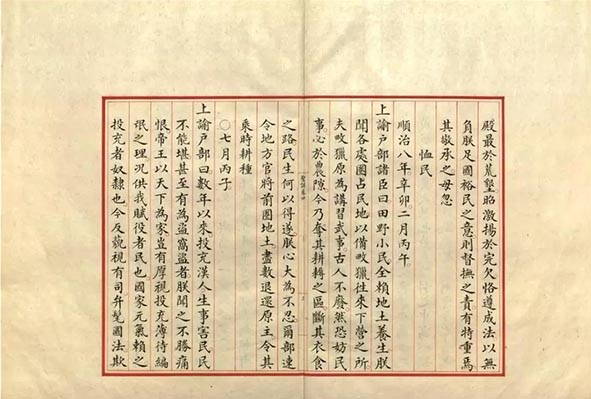 殿最於荒墾昭激揚於完欠恪遵成法以無
負朕足國裕民之意則督撫之責有特重焉
其敬承之毋忽
恤民
順治八年辛卯二月丙午
上諭戶部諸臣曰田野小民全賴地土養生朕
聞各處圈占民地以備畋獵往來下營之所
夫畋獵原為講習武事古人不廢然恐妨民
事必於農隙今乃奪其耕耨之區斷其衣食
之路民生何以得遂朕心大為不忍爾部速
令地方官將前圈地土盡數退還原主令其
乘時耕種
〇七月丙子
上諭戶部曰數年以來投充漢人生事害民民
不能堪甚至有為盜窩盜者朕聞之不勝痛
恨帝王以天下為家豈有厚視投充薄待編
氓之理况供我賦役者民也國家元氣賴之
投充者奴隸也今反藐視有司弁髦國法欺